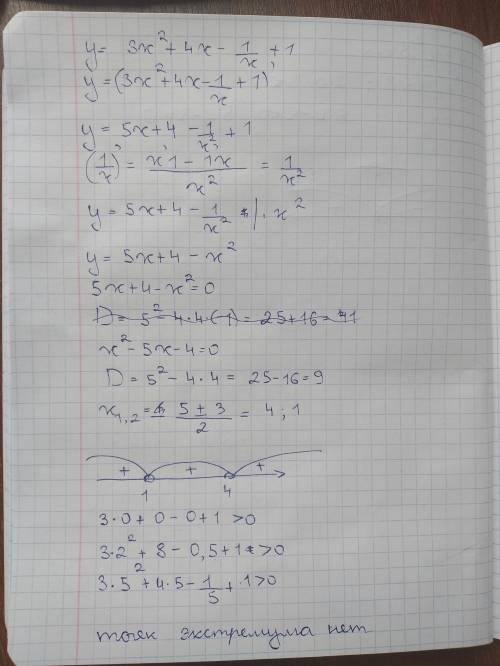 y = 3x² + 4x - 1/x + 1
y = (3x² + 4x - 1/x + 1)'
y = 5x + 4 - 1/x² + 1
(1/x)' = (x'1 - 1'x)/x² = 1/x²
y = 5x + 4 - 1/x² | · x²
y = 5x + 4 - x²
5x + 4 - x² = 0
D = 5² - 4·4(-1) = 25 + 16 = 41
x² - 5x - 4 = 0
D = 5² - 4·4 = 25 - 16 = 9
x1,2 = (5 ± 3)/2 = 4; 1
+ + +
1 4
3·0 + 0 - 0 + 1 > 0
3·2² + 8 - 0,5 + 1 > 0
3·5² + 4·5 - 1/5 + 1 > 0
точек экстремума нет